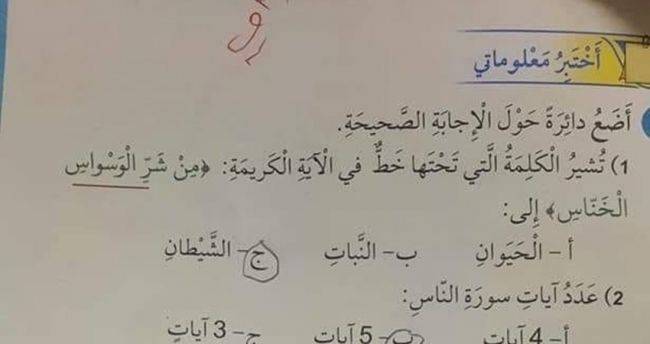 أَخْتَبِرُ مَعْلوماتي
أَضَعُ دائِرَةً حَوْلَ الْإِجابَةِ الصَّحيحَةِ.
1) تُشيرُ الْكَلِمَةُ الَّتي تَحْتَها خَطٌّ في الْآيَةِ الْكَريمَةِ: ﴿مِنْ شَرِّ الْوَسْواسِ
الْخَنّاسِ﴾ إِلى:
أ - الْحَيَوانِ ب- النَّباتِ ج- الشَّيْطانِ
2) عَدَدُ آياتِ سورَةِ النّاسِ:
أ- 4 آياتٍ ب- 5 آياتٍ ج- 3 آياتٍ